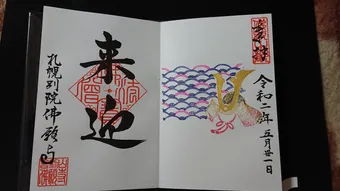 奉拝
令和二年 五月廿一日
来迎
札幌別院佛願寺